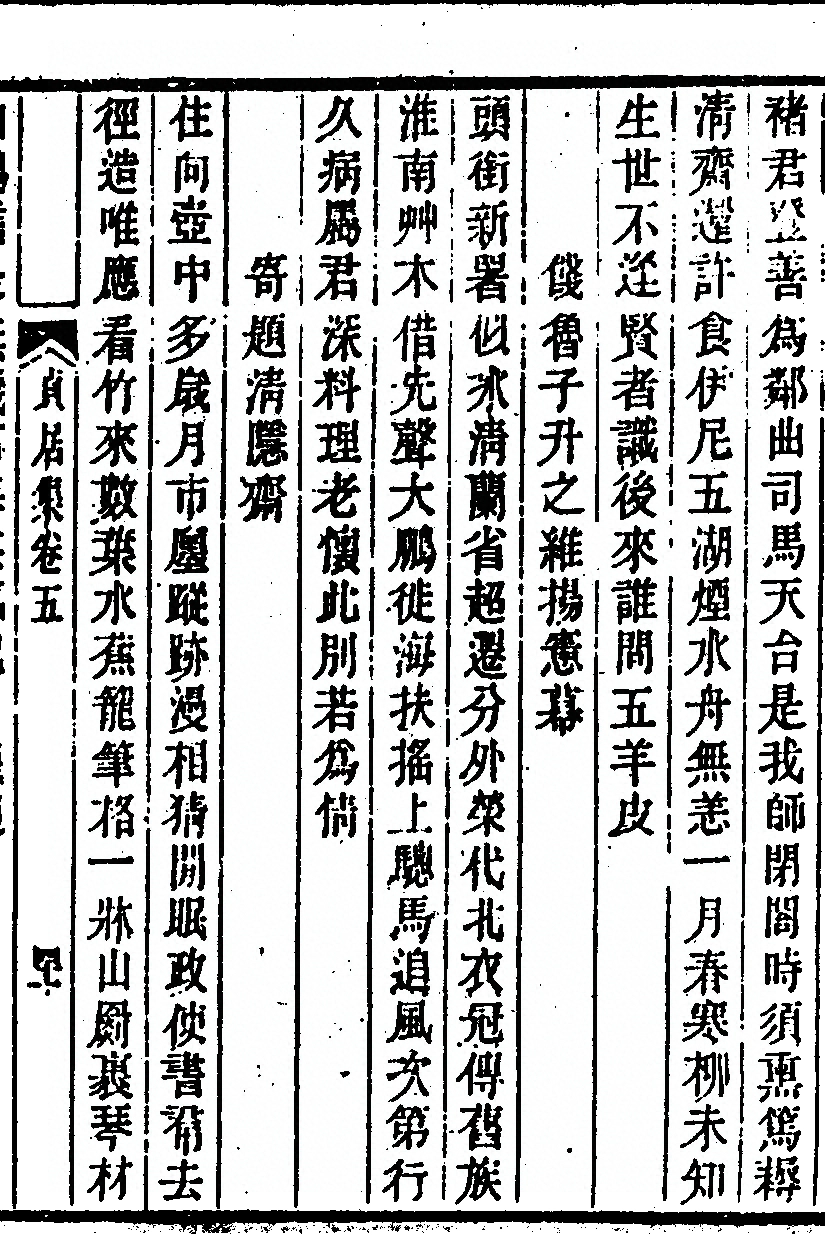 褚君登善為鄰曲司馬天台是我師閉閤時須熏篤耨
淸齋還許食伊尼五湖煙水舟無恙一月春寒柳未知
生世不逢賢者識後來誰問五羊皮
餞魯子升之維揚憲幕
頭銜新署似冰淸蘭省超遷分外榮代北衣冠傳舊族
淮南艸木借先聲大鵬徙海扶搖上驄馬追風次第行
久病屬君深料理老懷此別若為情
寄題淸隱齋
住向壺中多歲月市廛蹤跡漫相猜閒眠政使書
去
徑造唯應看竹來數葉水蕉籠筆格一牀山罽裹琴材
貞居集卷五